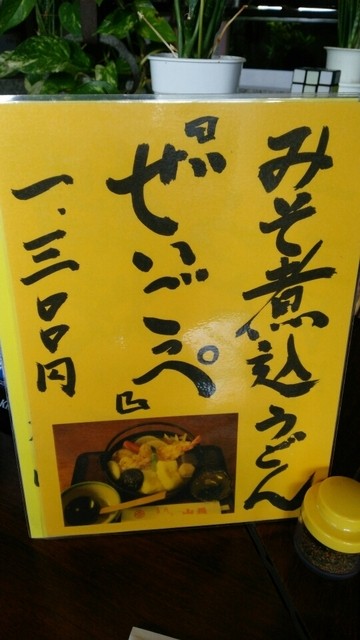 みそ煮込うどん
『ぜいごっぺ』
一、三〇〇円